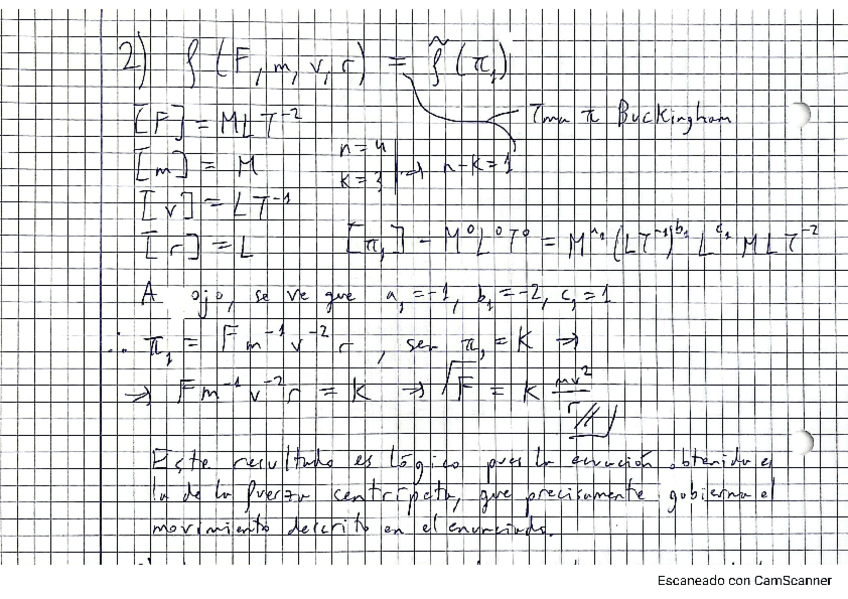 2) f (F, m, v, r) = f̃ (π₁)
Tma π Buckingham
[F] = MLT⁻²
[m] = M
n = 4
k = 3 → n-k=1
[v] = LT⁻¹
[r] = L [π₁] = M⁰L⁰T⁰ = M^a₁ (LT⁻¹)^b₁ L^c₁ MLT⁻²
A ojo, se ve que a₁=-1, b₁=-2, c₁=1
∴ π₁ = F m⁻¹ v⁻² r , sea π₁ = K ⇒
⇒ F m⁻¹ v⁻² r = K ⇒ F = k mv²/r //
Este resultado es lógico pues la ecuación obtenida es
la de la fuerza centrípeta, que precisamente gobierna el
movimiento descrito en el enunciado.
Escaneado con CamScanner